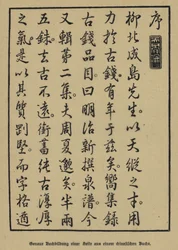 序
柳北成島先生以天縱之才用
力於古錢有年于茲矣嚮集録
古錢品目曰明治新撰泉譜今
又輯第二集夫周夏邈矣半兩
五銖去古不遠衝高純古渾厚
之氣是以其質剛堅而字格遒
Genaue Nachbildung einer Seite aus einem chinesischen Buche.